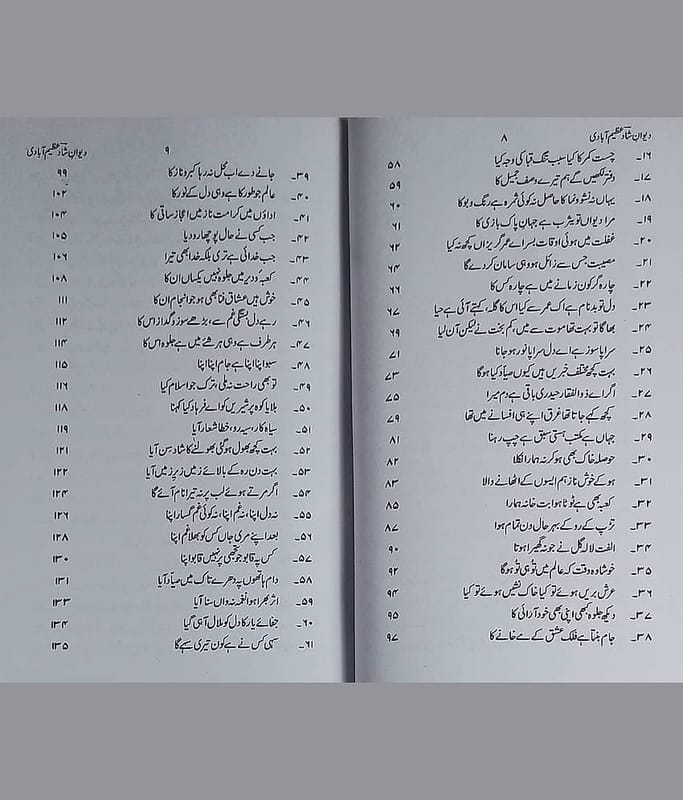 دیوانِ شاد عظیم آبادی ۸
۱۶۔ چست کمر کا کیا سبب تنگ قبا کی وجہ کیا ۵۸
۱۷۔ دفتر لکھیں گے ہم تیرے وصف جمیل کا ۵۹
۱۸۔ یہاں نہ نشو و نما کا حاصل نہ کوئی ثمرہ ہے رنگ و بو کا ۶۰
۱۹۔ مرا دیواں تو یثرب ہے جہانِ پاک بازی کا ۶۱
۲۰۔ غفلت میں ہوئی اوقات بسر اے عمرِ گریزاں کچھ نہ کیا ۶۲
۲۱۔ مصیبت جس سے زائل ہو وہی سامان کر دے گا ۶۴
۲۲۔ چارہ گر کون زمانے میں ہے بے چارہ کس کا ۶۶
۲۳۔ دل تو بدنام ہے اک عمر سے کیا اس کا گلہ، کہتے آئی ہے حیا ۶۷
۲۴۔ بھاگا تو بہت تھا موت سے میں، کم بخت نے لیکن آن لیا ۶۹
۲۵۔ سراپا سوز ہے اے دل سراپا نور ہو جانا ۷۱
۲۶۔ بہت کچھ مختلف خبریں ہیں کیوں صیاد کیا ہو گا ۷۳
۲۷۔ اگر اے ذوالفقار حیدری باقی ہے دم میرا ۷۵
۲۸۔ کچھ کہے جاتا تھا غرق اپنے ہی افسانے میں تھا ۷۹
۲۹۔ جہاں ہے مکتب ہستی سبق ہے چپ رہنا ۸۱
۳۰۔ حوصلہ خاک بھی ہو کر نہ ہمارا نکلا ۸۲
۳۱۔ ہو کے خوش ناز ہم ایسوں کے اٹھانے والا ۸۳
۳۲۔ کعبہ بھی ہے ٹوٹا ہوا بت خانہ ہمارا ۸۵
۳۳۔ تڑپ کے رو کے بہر حال دن تمام ہوا ۸۷
۳۴۔ الفت لالہ گل نے جو نہ گھیرا ہوتا ۹۰
۳۵۔ خوشا وہ وقت کہ عالم میں تو ہی تو ہو گا ۹۲
۳۶۔ عرش بریں ہوئے تو کیا خاک نشیں ہوئے تو کیا ۹۴
۳۷۔ دیکھ جلوہ کبھی اپنی بھی خود آرائی کا ۹۵
۳۸۔ جام بنتا ہے فلک عشق کے مے خانے کا ۹۷
دیوانِ شاد عظیم آبادی ۹
۳۹۔ جانے دے اب محل نہ رہا کبر و ناز کا ۹۹
۴۰۔ عالم جو طور کا ہے وہی دل کے نور کا ۱۰۲
۴۱۔ اداؤں میں کرامت ناز میں اعجاز ساقی کا ۱۰۴
۴۲۔ جب کسی نے حال پوچھا رو دیا ۱۰۵
۴۳۔ جب خدائی ہے تری بلکہ خدا بھی تیرا ۱۰۶
۴۴۔ کعبہ و دیر میں جلوہ نہیں یکساں ان کا ۱۰۸
۴۵۔ خوش ہیں عشاق فنا بھی ہو جو انجام ان کا ۱۱۱
۴۶۔ رہے دل بستگی غم سے، بڑھے سوز و گداز اس کا ۱۱۲
۴۷۔ ہر طرف ہے وہی ہر شئے میں ہے جلوہ اس کا ۱۱۴
۴۸۔ سبو اپنا اپنا ہے جام اپنا اپنا ۱۱۵
۴۹۔ تو بھی راحت نہ ملی، ترک جو اسلام کیا ۱۱۶
۵۰۔ بلایا کوہ پر شیریں کو اے فرہاد کیا کہنا ۱۱۸
۵۱۔ سیاہ کار، رو سیہ، خطا شعار آیا ۱۱۹
۵۲۔ بہت کچھ بھول ہو گئی بھولنے کا شاد سن آیا ۱۲۱
۵۳۔ بہت دن رہ کے بالائے زمیں زیرِ زمیں آیا ۱۲۲
۵۴۔ اگر مرتے ہوئے لب پر نہ تیرا نام آئے گا ۱۲۴
۵۵۔ نہ دل اپنا، نہ غم اپنا، نہ کوئی غم گسار اپنا ۱۲۶
۵۶۔ بعد اپنے مری جاں کس کو بھلا غم اپنا ۱۲۸
۵۷۔ کس پہ قابو جو تجھی پر نہیں قابو اپنا ۱۳۰
۵۸۔ دام ہاتھوں پہ دھرے تاک میں صیاد آیا ۱۳۱
۵۹۔ اثر بھرا ہوا نغمہ نہ واں سنا آیا ۱۳۳
۶۰۔ جفائے یار کا دل کو ملال آ ہی گیا ۱۳۴
۶۱۔ سہی کس نے ہے کون تیری سہے گا ۱۳۵